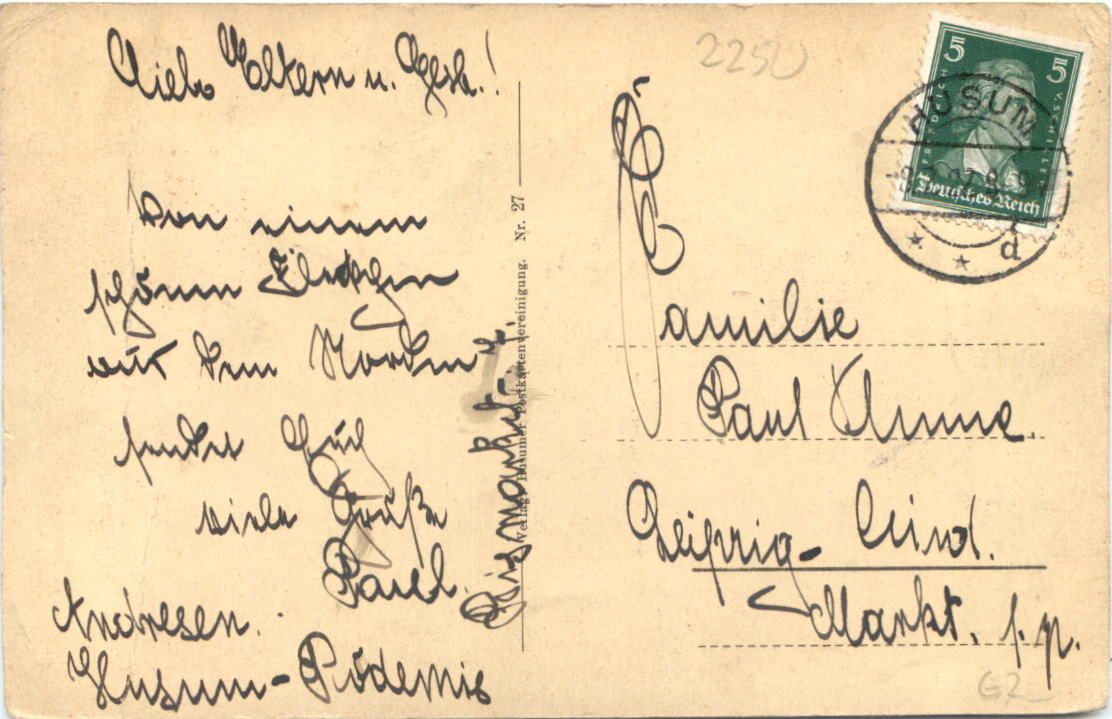 Liebe Eltern u. Gesch.!
Von einem
schönen Fleckchen
aus dem Norden
sendet Euch
viele Grüße
Paul.
Andresen.
Husum-Rödemis
Bismarkstr.
Verlag: Husumer Postkartenvereinigung. Nr. 27
2250
5 5
FRIEDRICH V. SCHILLER
Deutsches Reich
HUSUM
d
Familie
Paul
Leipzig- Lind.
Markt.
G2